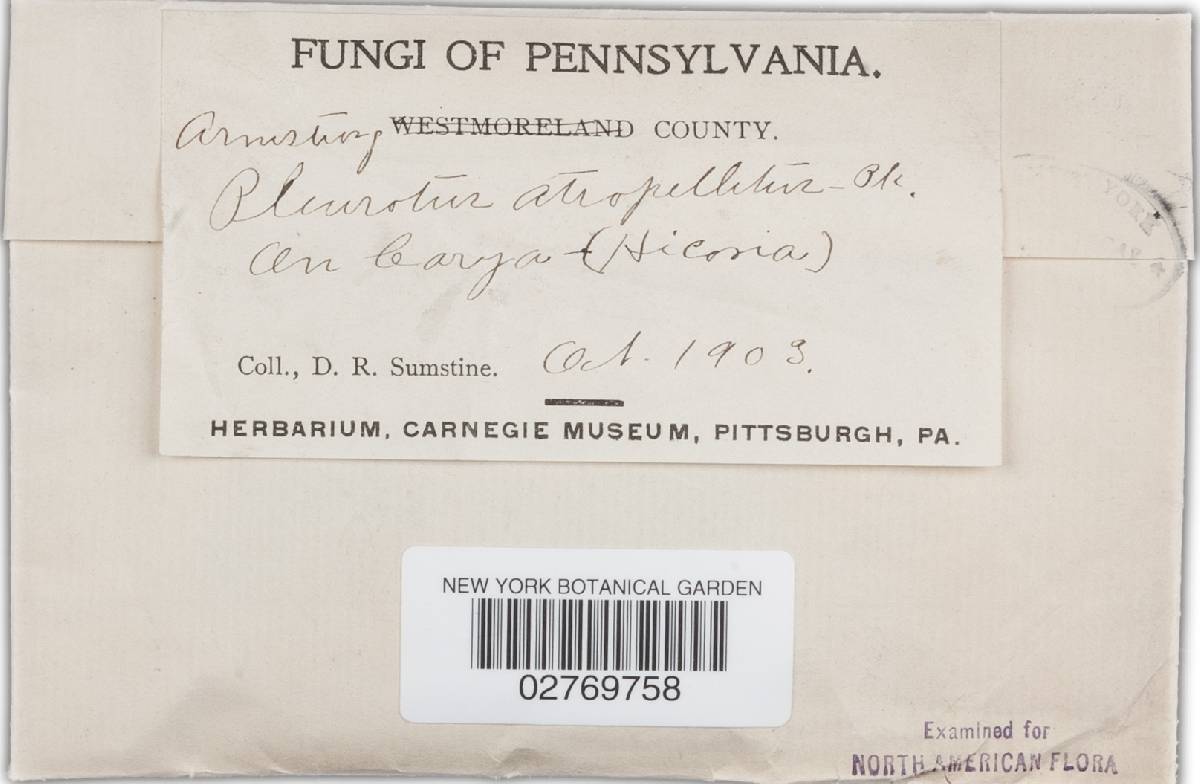 FUNGI OF PENNSYLVANIA.
Armstrong WESTMORELAND COUNTY.
Pleurotus atropellitus - Pk.
On Carya - (Hicoria)
Coll., D. R. Sumstine. Oct. 1903.
HERBARIUM, CARNEGIE MUSEUM, PITTSBURGH, PA.
YORK
NEW YORK BOTANICAL GARDEN
02769758
Examined for
NORTH AMERICAN FLORA